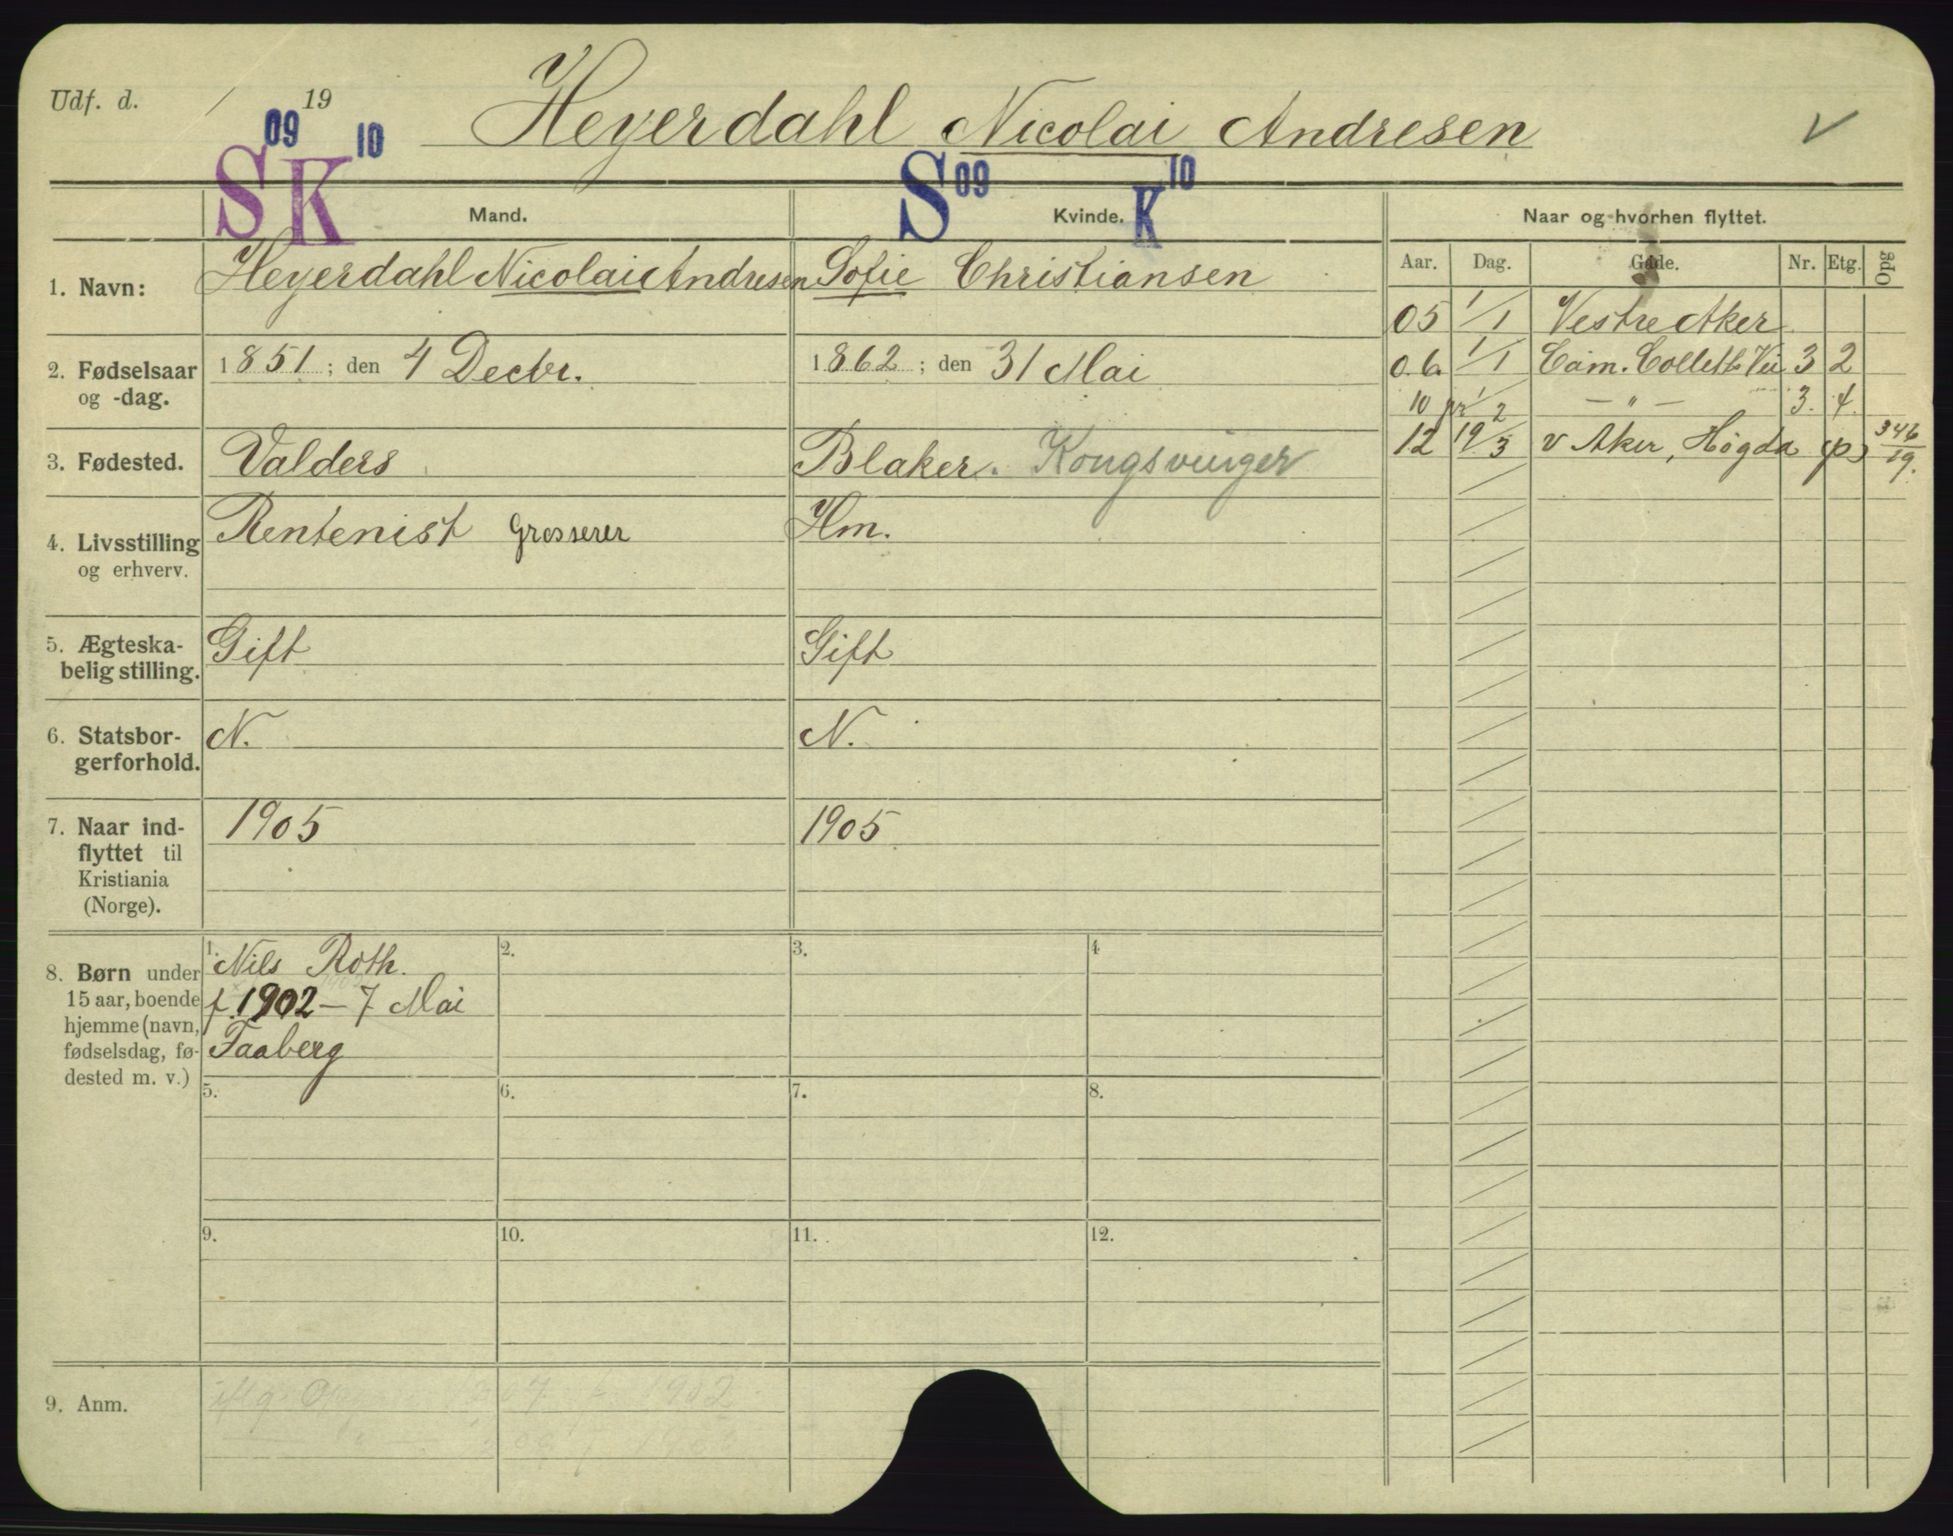 Udf. d. / 19
Heyerdahl Nicolai Andresen
V
09 10
S K
S 09 K 10
Mand. Kvinde. Naar og hvorhen flyttet.
Aar. Dag. Gade. Nr. Etg. Opg
1. Navn: Heyerdahl Nicolai Andresen Sofie Christiansen
05 1/1 Vestre Aker
2. Fødselsaar 1851; den 4 Decbr. 1862; den 31 Mai
og -dag.
06. 1/1 Cam. Colletts Vei 3 2
10 1/2 — " — 3. 4.
12 19/3 V Aker, Høgda (p) 346/19.
3. Fødested. Valders Blaker. Kongsvinger
4. Livsstilling Rentenist Grosserer Hm.
og erhverv.
5. Ægteska- Gift Gift
belig stilling.
6. Statsbor- N. N.
gerforhold.
7. Naar ind- 1905 1905
flyttet til
Kristiania
(Norge).
8. Børn under
15 aar, boende
hjemme (navn,
fødselsdag, fø-
dested m. v.)
1. Nils Roth.
f. 1902 — 7 Mai
Faaberg
2. 3. 4
5. 6. 7. 8.
9. 10. 11. 12.
9. Anm.